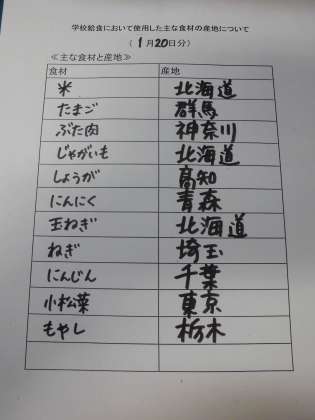 学校給食において使用した主な食材の産地について
（ 1月20日分）
≪主な食材と産地≫
食材 産地
米 北海道
たまご 群馬
ぶた肉 神奈川
じゃがいも 北海道
しょうが 高知
にんにく 青森
玉ねぎ 北海道
ねぎ 埼玉
にんじん 千葉
小松菜 東京
もやし 栃木